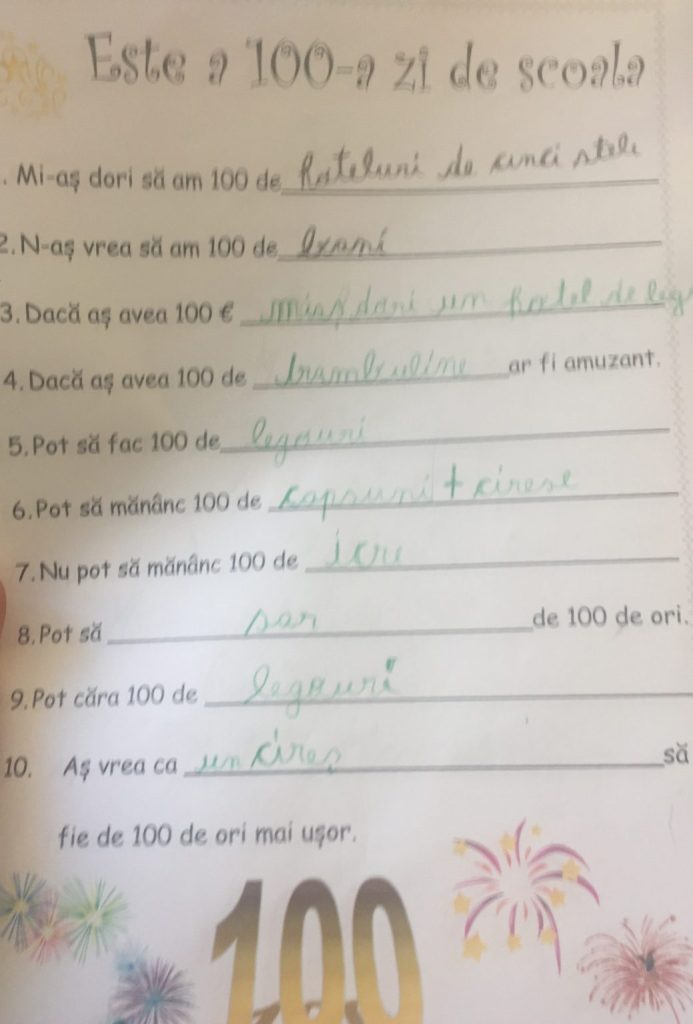 Este a 100-a zi de scoala
. Mi-aş dori să am 100 de hoteluri de cinci stele
2. N-aş vrea să am 100 de
3. Dacă aş avea 100 € hotel de leg
4. Dacă aş avea 100 de trambuline ar fi amuzant.
5. Pot să fac 100 de legouri
6. Pot să mănânc 100 de capsuni + cirese
7. Nu pot să mănânc 100 de icre
8. Pot să sar de 100 de ori.
9. Pot căra 100 de legouri
10. Aş vrea ca un cireş să
fie de 100 de ori mai uşor.
100